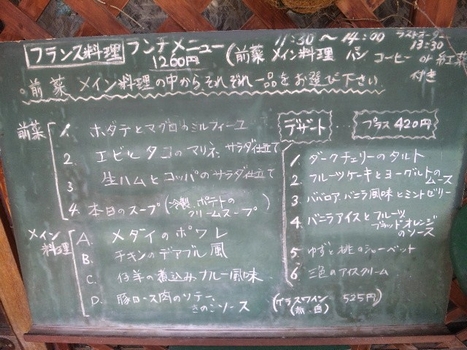 11:30 ~ 14:00 ラストオーダー 13:30
フランス料理 ランチメニュー 1260円 (前菜 メイン料理 パン コーヒー or 紅茶 付き
。前菜 メイン料理の中からそれぞれ一品をお選び下さい
前菜
1. ホタテとマグロのミルフィーユ
2. エビとタコのマリネ サラダ仕立て
3. 生ハムとコッパのサラダ仕立て
4. 本日のスープ (冷製 ポテトのクリームスープ)
メイン料理
A. メダイのポワレ
B. チキンのデアブル風
C. 仔羊の煮込み カレー風味
D. 豚ロース肉のソテー、きのこソース
デザート ... プラス 420円
1. ダークチェリーのタルト
2. フルーツケーキとヨーグルトのムース
3. ババロア バニラ風味とミントゼリー
4. バニラアイスとフルーツ ブラッドオレンジのソース
5. ゆずと桃のシャーベット
6 三色のアイスクリーム
(グラスワイン (赤・白) 525円)